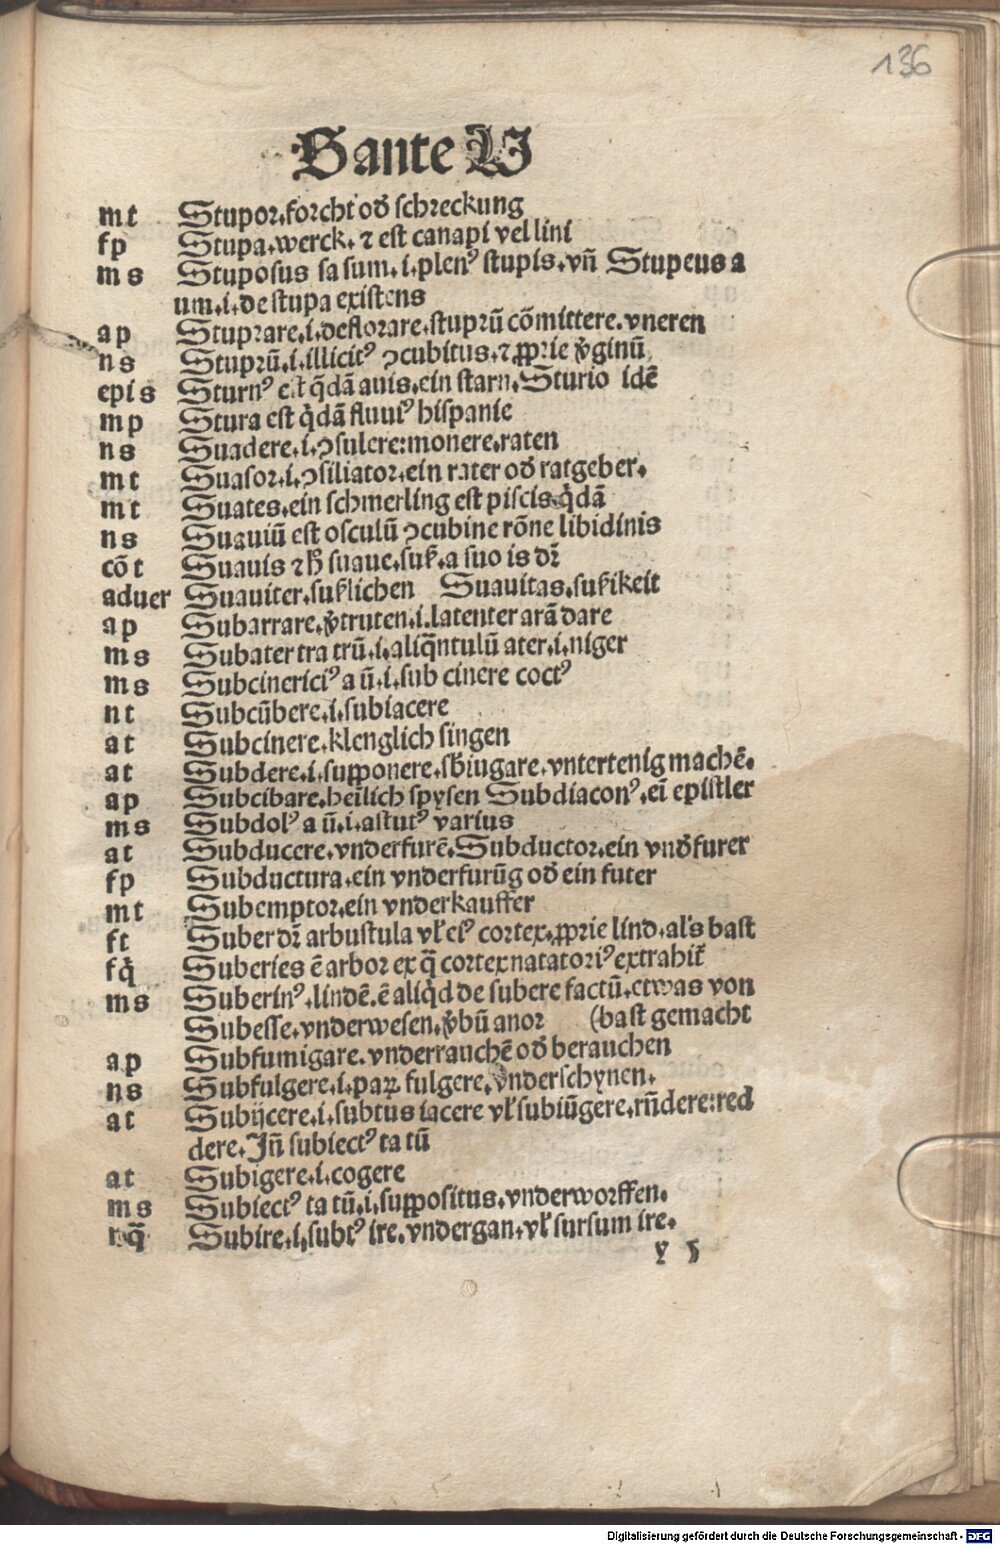 136
S ante U
mt Stupor.forcht oď schreckung
fp Stupa.werck. ⁊ est canapi vel lini
ms Stuposus sa sum.i.plenꝰ stupis.vñ Stupeus a
um.i.de stupa existens
ap Stuprare.i.deflorare.stuprū cōmittere.vneren
ns Stuprū.i.illicitꝰ ↄcubitus.⁊ ꝓprie v̾ginū
epi s Sturnꝰ est q̄dā auis.ein starn.Sturio idē
mp Stura est q̇dā fluuiꝰ hispanie
ns Suadere.i.ↄsulere:monere.raten
mt Suasor.i.ↄsiliator.ein rater oď ratgeber.
mt Suates.ein schmerling est piscis q̇dā
ns Suauiū est osculū ↄcubine rōne libidinis
cō t Suauis ⁊ h̄ suaue.suß.a suo is dr̄
aduer Suauiter.sußlichen Suauitas.sußikeit
ap Subarrare.v̾truten.i.latenter arā dare
ms Subater tra trū.i.aliq̄ntulū ater.i.niger
ms Subcinericiꝰ a ū.i.sub cinere coctꝰ
nt Subcūbere.i.subiacere
at Subcinere.klenglich singen
at Subdere.i.supponere.sb̄iugare.vntertenig machē.
ap Subcibare.heīlich spysen Subdiaconꝰ.eī epistler
ms Subdolꝰ a ū.i.astutꝰ varius
at Subducere.vnderfurē.Subductor.ein vnďfurer
fp Subductura.ein vnderfurūg oď ein futer
mt Subemptor.ein vnderkauffer
ft Suber dr̄ arbustula vł eiꝰ cortex.ꝓprie lind.als bast
fq̇ Suberies ē arbor ex q̄ cortex natatoriꝰ extrahit᷑
ms Suberinꝰ.lindē.ē aliq̇d de subere factū.etwas von
Subesse.vnderwesen.v̾bū anor (bast gemacht
ap Subfumigare.vnderrauchē oď berauchen
ns Subfulgere.i.parꝝ fulgere.vnderschynen.
at Subijcere.i.subtus iacere vł subiūgere.rn̄dere:red
dere.Jñ subiectꝰ ta tū
at Subigere.i.cogere
ms Subiectꝰ ta tū.i.suppositus.vnderworffen.
nq̄ Subire.i.subtꝰ ire.vndergan.vł sursum ire.
y 5
Digitalisierung gefördert durch die Deutsche Forschungsgemeinschaft - DFG